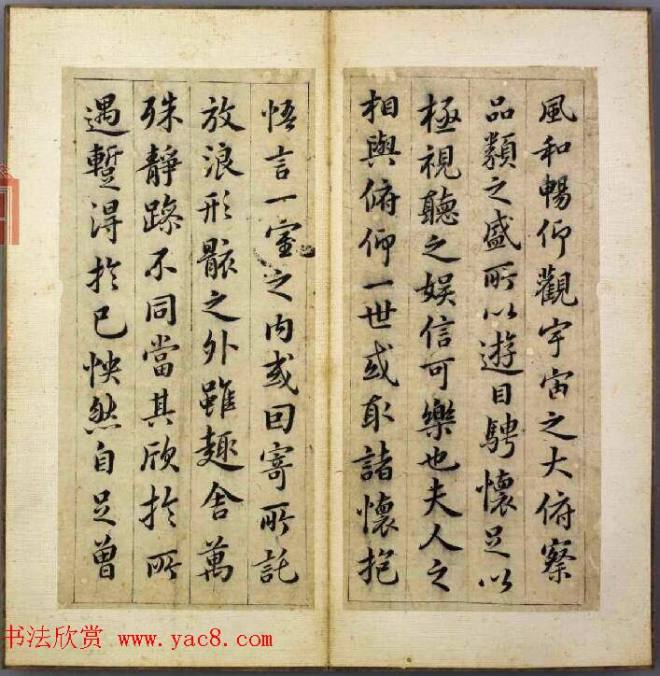 風和暢仰觀宇宙之大俯察
品類之盛所以遊目騁懷足以
極視聽之娱信可樂也夫人之
相與俯仰一世或取諸懷抱
悟言一室之内或因寄所託
放浪形骸之外雖趣舍萬
殊静躁不同當其欣扵所
遇蹔得扵己怏然自足曽
书法欣赏 www.yac8.com